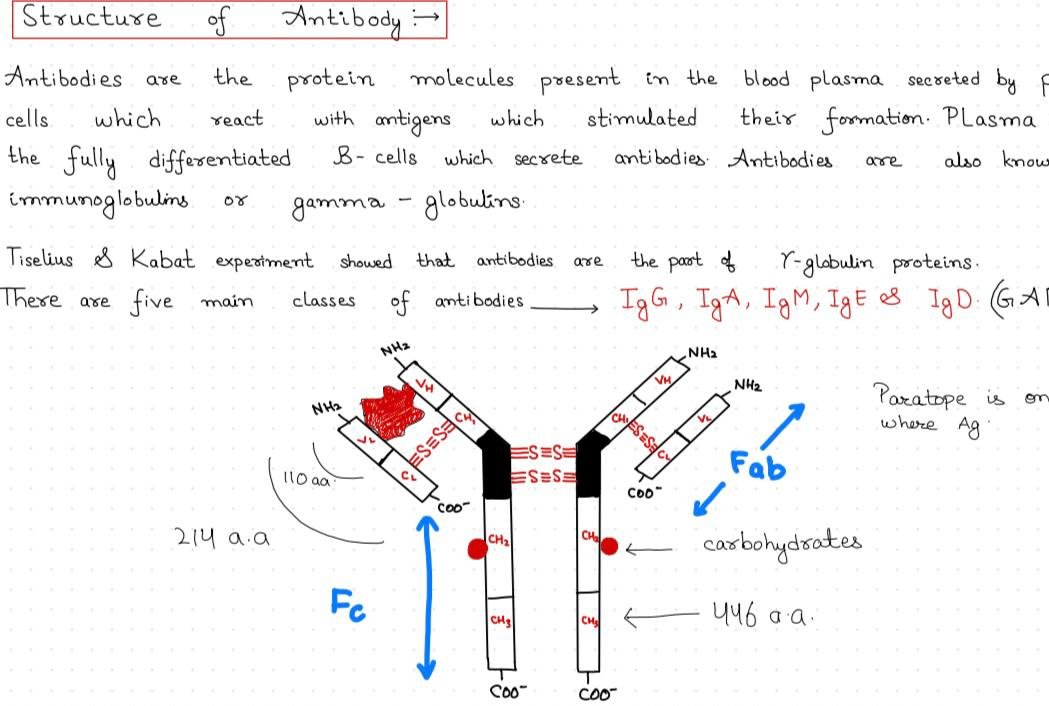 Structure of Antibody :→
Antibodies are the protein molecules present in the blood plasma secreted by
cells which react with antigens which stimulated their formation. PLasma
the fully differentiated B-cells which secrete antibodies. Antibodies are also know
immunoglobulins or gamma - globulins.
Tiselius & Kabat experiment showed that antibodies are the part of γ-globulin proteins.
There are five main classes of antibodies → IgG, IgA, IgM, IgE & IgD. (GA
NH2
NH2
VH
VH
NH2
NH2
VL
VL
CH1
CH1
S≡S
S≡S
CL
CL
≡S≡S≡
≡S≡S≡
COO-
COO-
Paratope is on
where Ag.
Fab
110 aa.
214 a.a
CH2
CH2
carbohydrates
Fc
CH3
CH3
446 a.a.
COO-
COO-